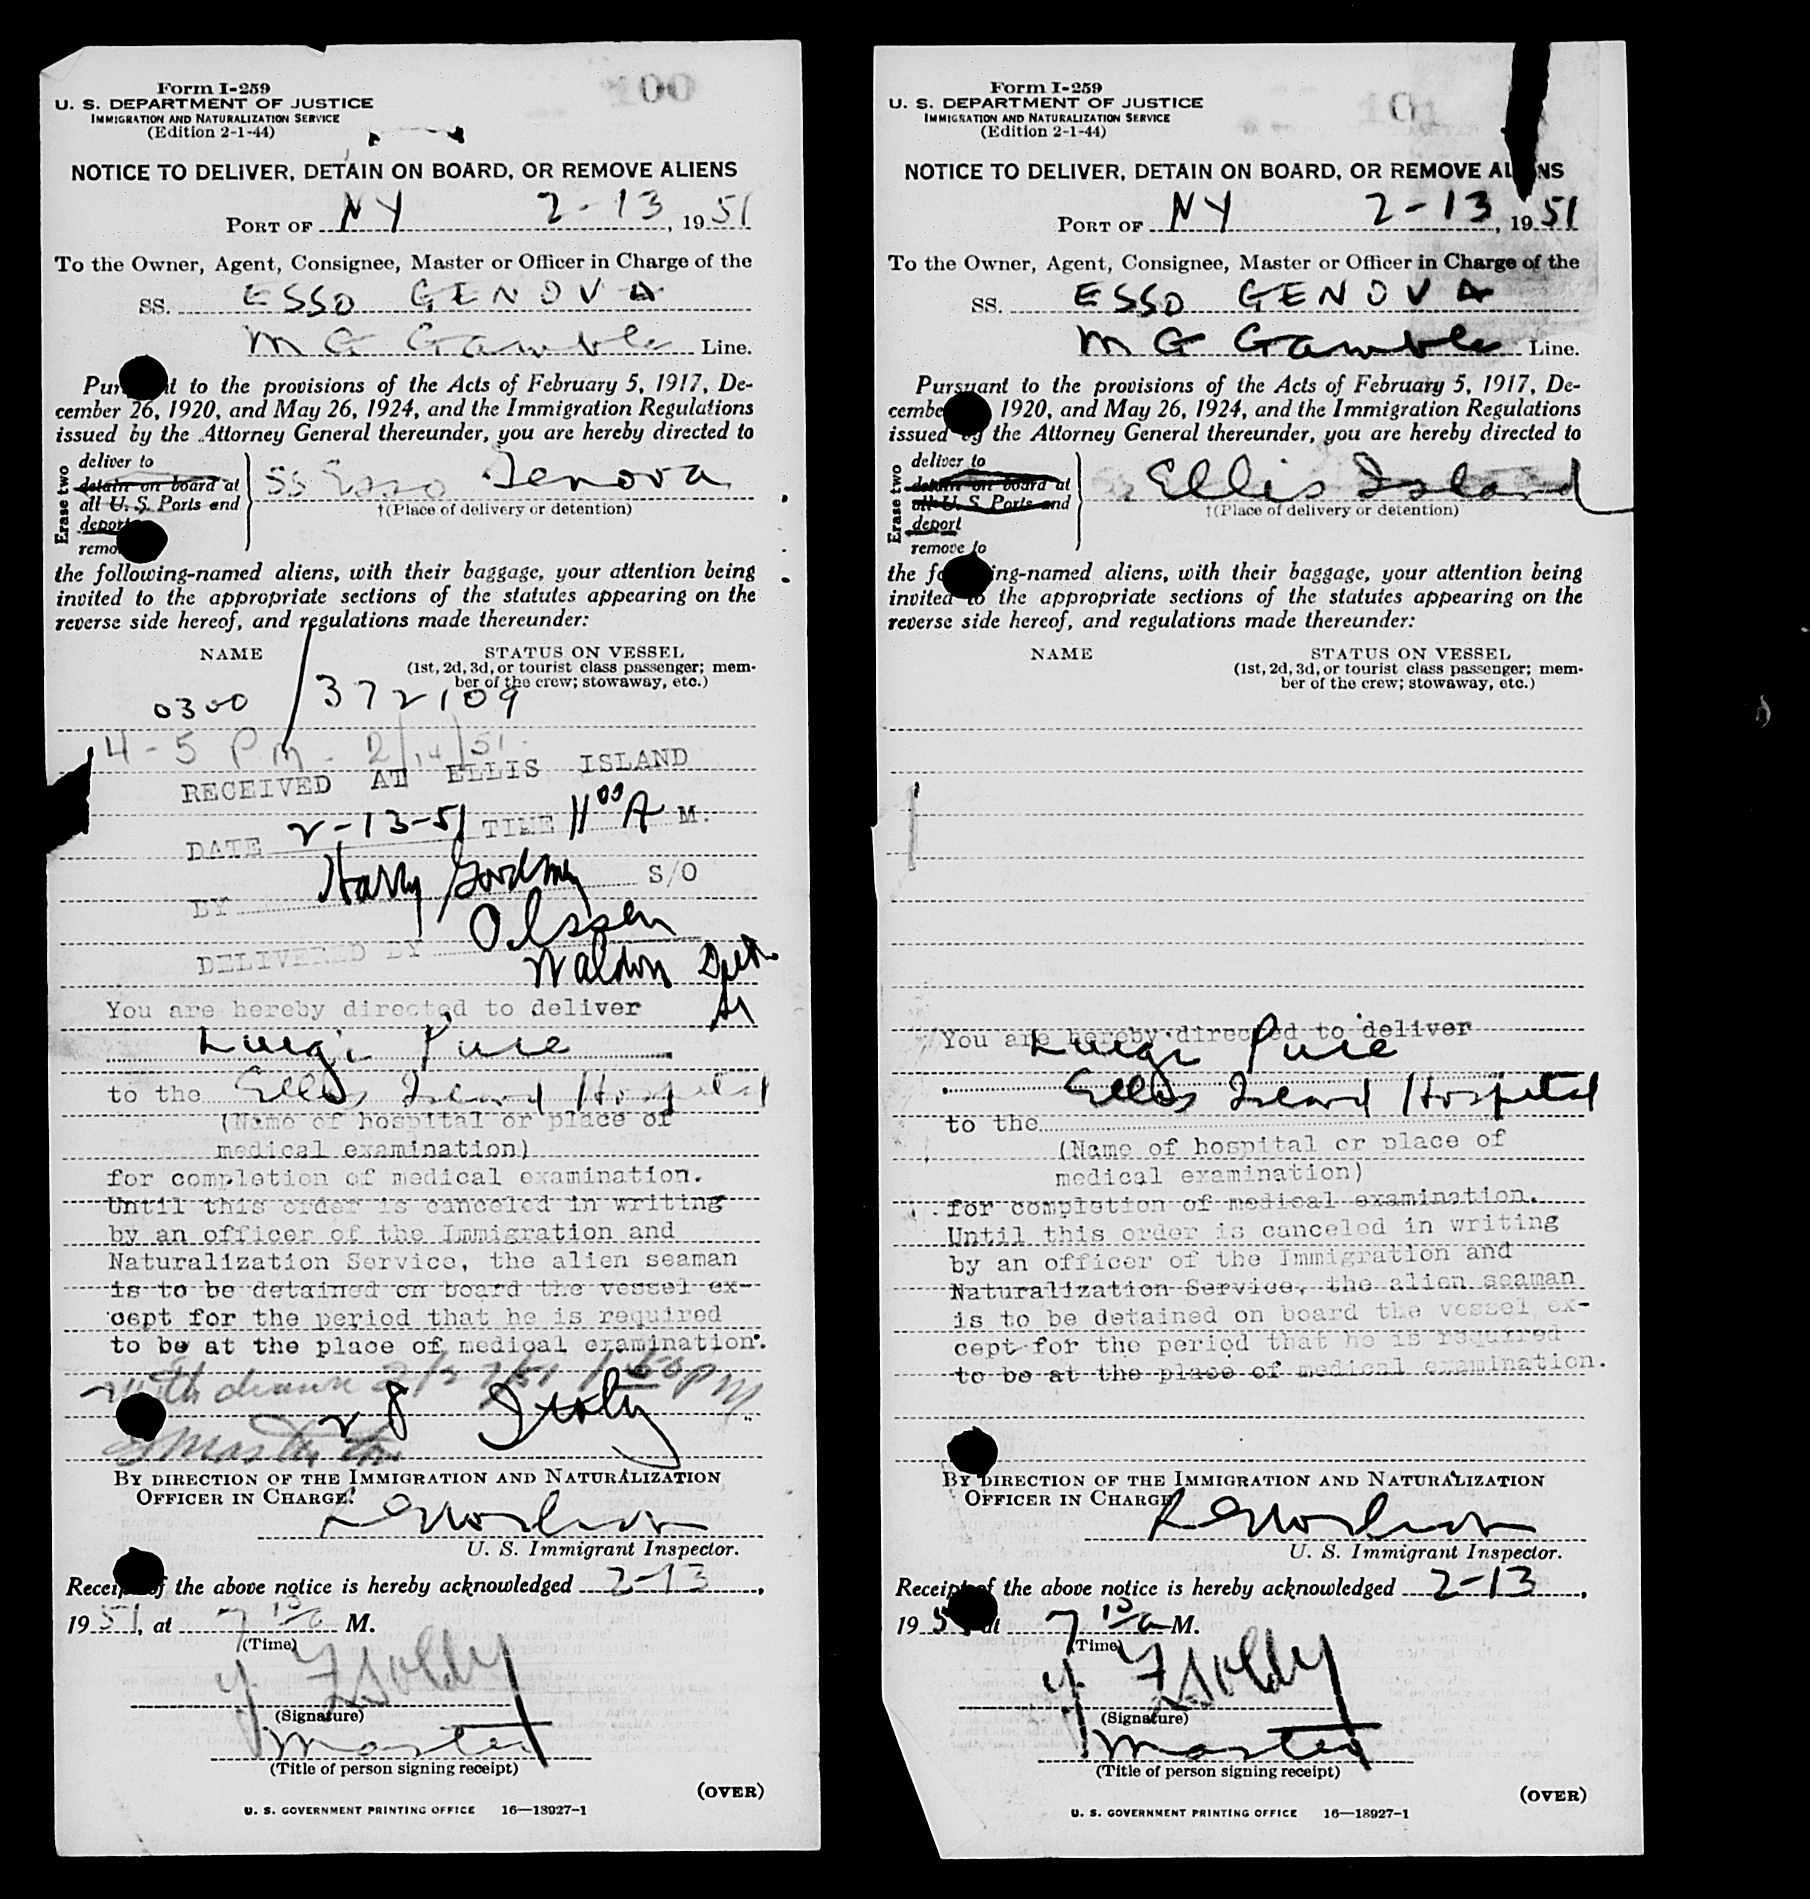 100
Form I-259
U. S. DEPARTMENT OF JUSTICE
IMMIGRATION AND NATURALIZATION SERVICE
(Edition 2-1-44)
NOTICE TO DELIVER, DETAIN ON BOARD, OR REMOVE ALIENS
PORT OF NY 2-13, 1951
To the Owner, Agent, Consignee, Master or Officer in Charge of the
SS. ESSO GENOVA
M G Gamble Line.
Pursuant to the provisions of the Acts of February 5, 1917, De-
cember 26, 1920, and May 26, 1924, and the Immigration Regulations
issued by the Attorney General thereunder, you are hereby directed to
Erase two
deliver to
detain on board at
all U. S. Ports and
deport
remo
SS Esso Genova
†(Place of delivery or detention)
the following-named aliens, with their baggage, your attention being
invited to the appropriate sections of the statutes appearing on the
reverse side hereof, and regulations made thereunder:
NAME STATUS ON VESSEL
(1st, 2d, 3d, or tourist class passenger; mem-
ber of the crew; stowaway, etc.)
0300/372109
4-5 PM - 2/14/51
RECEIVED AT ELLIS ISLAND
DATE 2-13-51 TIME 11 00 A M.
BY Harry S/O
DELIVERED BY Olssen
Waldon
You are hereby directed to deliver
Luigi Puie
to the Ellis Island Hospital
(Name of hospital or place of
medical examination)
for completion of medical examination.
Until this order is canceled in writing
by an officer of the Immigration and
Naturalization Service, the alien seaman
is to be detained on board the vessel ex-
cept for the period that he is required
to be at the place of medical examination.
Withdrawn
Italy
BY DIRECTION OF THE IMMIGRATION AND NATURALIZATION
OFFICER IN CHARGE:
U. S. Immigrant Inspector.
Receipt of the above notice is hereby acknowledged 2-13,
1951, at 7 10/a M.
(Time)
(Signature)
Master
(Title of person signing receipt)
(OVER)
U. S. GOVERNMENT PRINTING OFFICE 16—18927-1
101
Form I-259
U. S. DEPARTMENT OF JUSTICE
IMMIGRATION AND NATURALIZATION SERVICE
(Edition 2-1-44)
NOTICE TO DELIVER, DETAIN ON BOARD, OR REMOVE ALIENS
PORT OF NY 2-13, 1951
To the Owner, Agent, Consignee, Master or Officer in Charge of the
SS. ESSO GENOVA
M G Gamble Line.
Pursuant to the provisions of the Acts of February 5, 1917, De-
cembe 1920, and May 26, 1924, and the Immigration Regulations
issued by the Attorney General thereunder, you are hereby directed to
Erase two
deliver to
detain on board at
all U. S. Ports and
deport
remove to
Ellis Island
†(Place of delivery or detention)
the following-named aliens, with their baggage, your attention being
invited to the appropriate sections of the statutes appearing on the
reverse side hereof, and regulations made thereunder:
NAME STATUS ON VESSEL
(1st, 2d, 3d, or tourist class passenger; mem-
ber of the crew; stowaway, etc.)
You are hereby directed to deliver
Luigi Puie
Ellis Island Hospital
to the
(Name of hospital or place of
medical examination)
for completion of medical examination.
Until this order is canceled in writing
by an officer of the Immigration and
Naturalization Service, the alien seaman
is to be detained on board the vessel ex-
cept for the period that he is required
to be at the place of medical examination.
BY DIRECTION OF THE IMMIGRATION AND NATURALIZATION
OFFICER IN CHARGE
U. S. Immigrant Inspector.
Receipt of the above notice is hereby acknowledged 2-13,
195 at 7 10/a M.
(Time)
(Signature)
Master
(Title of person signing receipt)
(OVER)
U. S. GOVERNMENT PRINTING OFFICE 16—18927-1